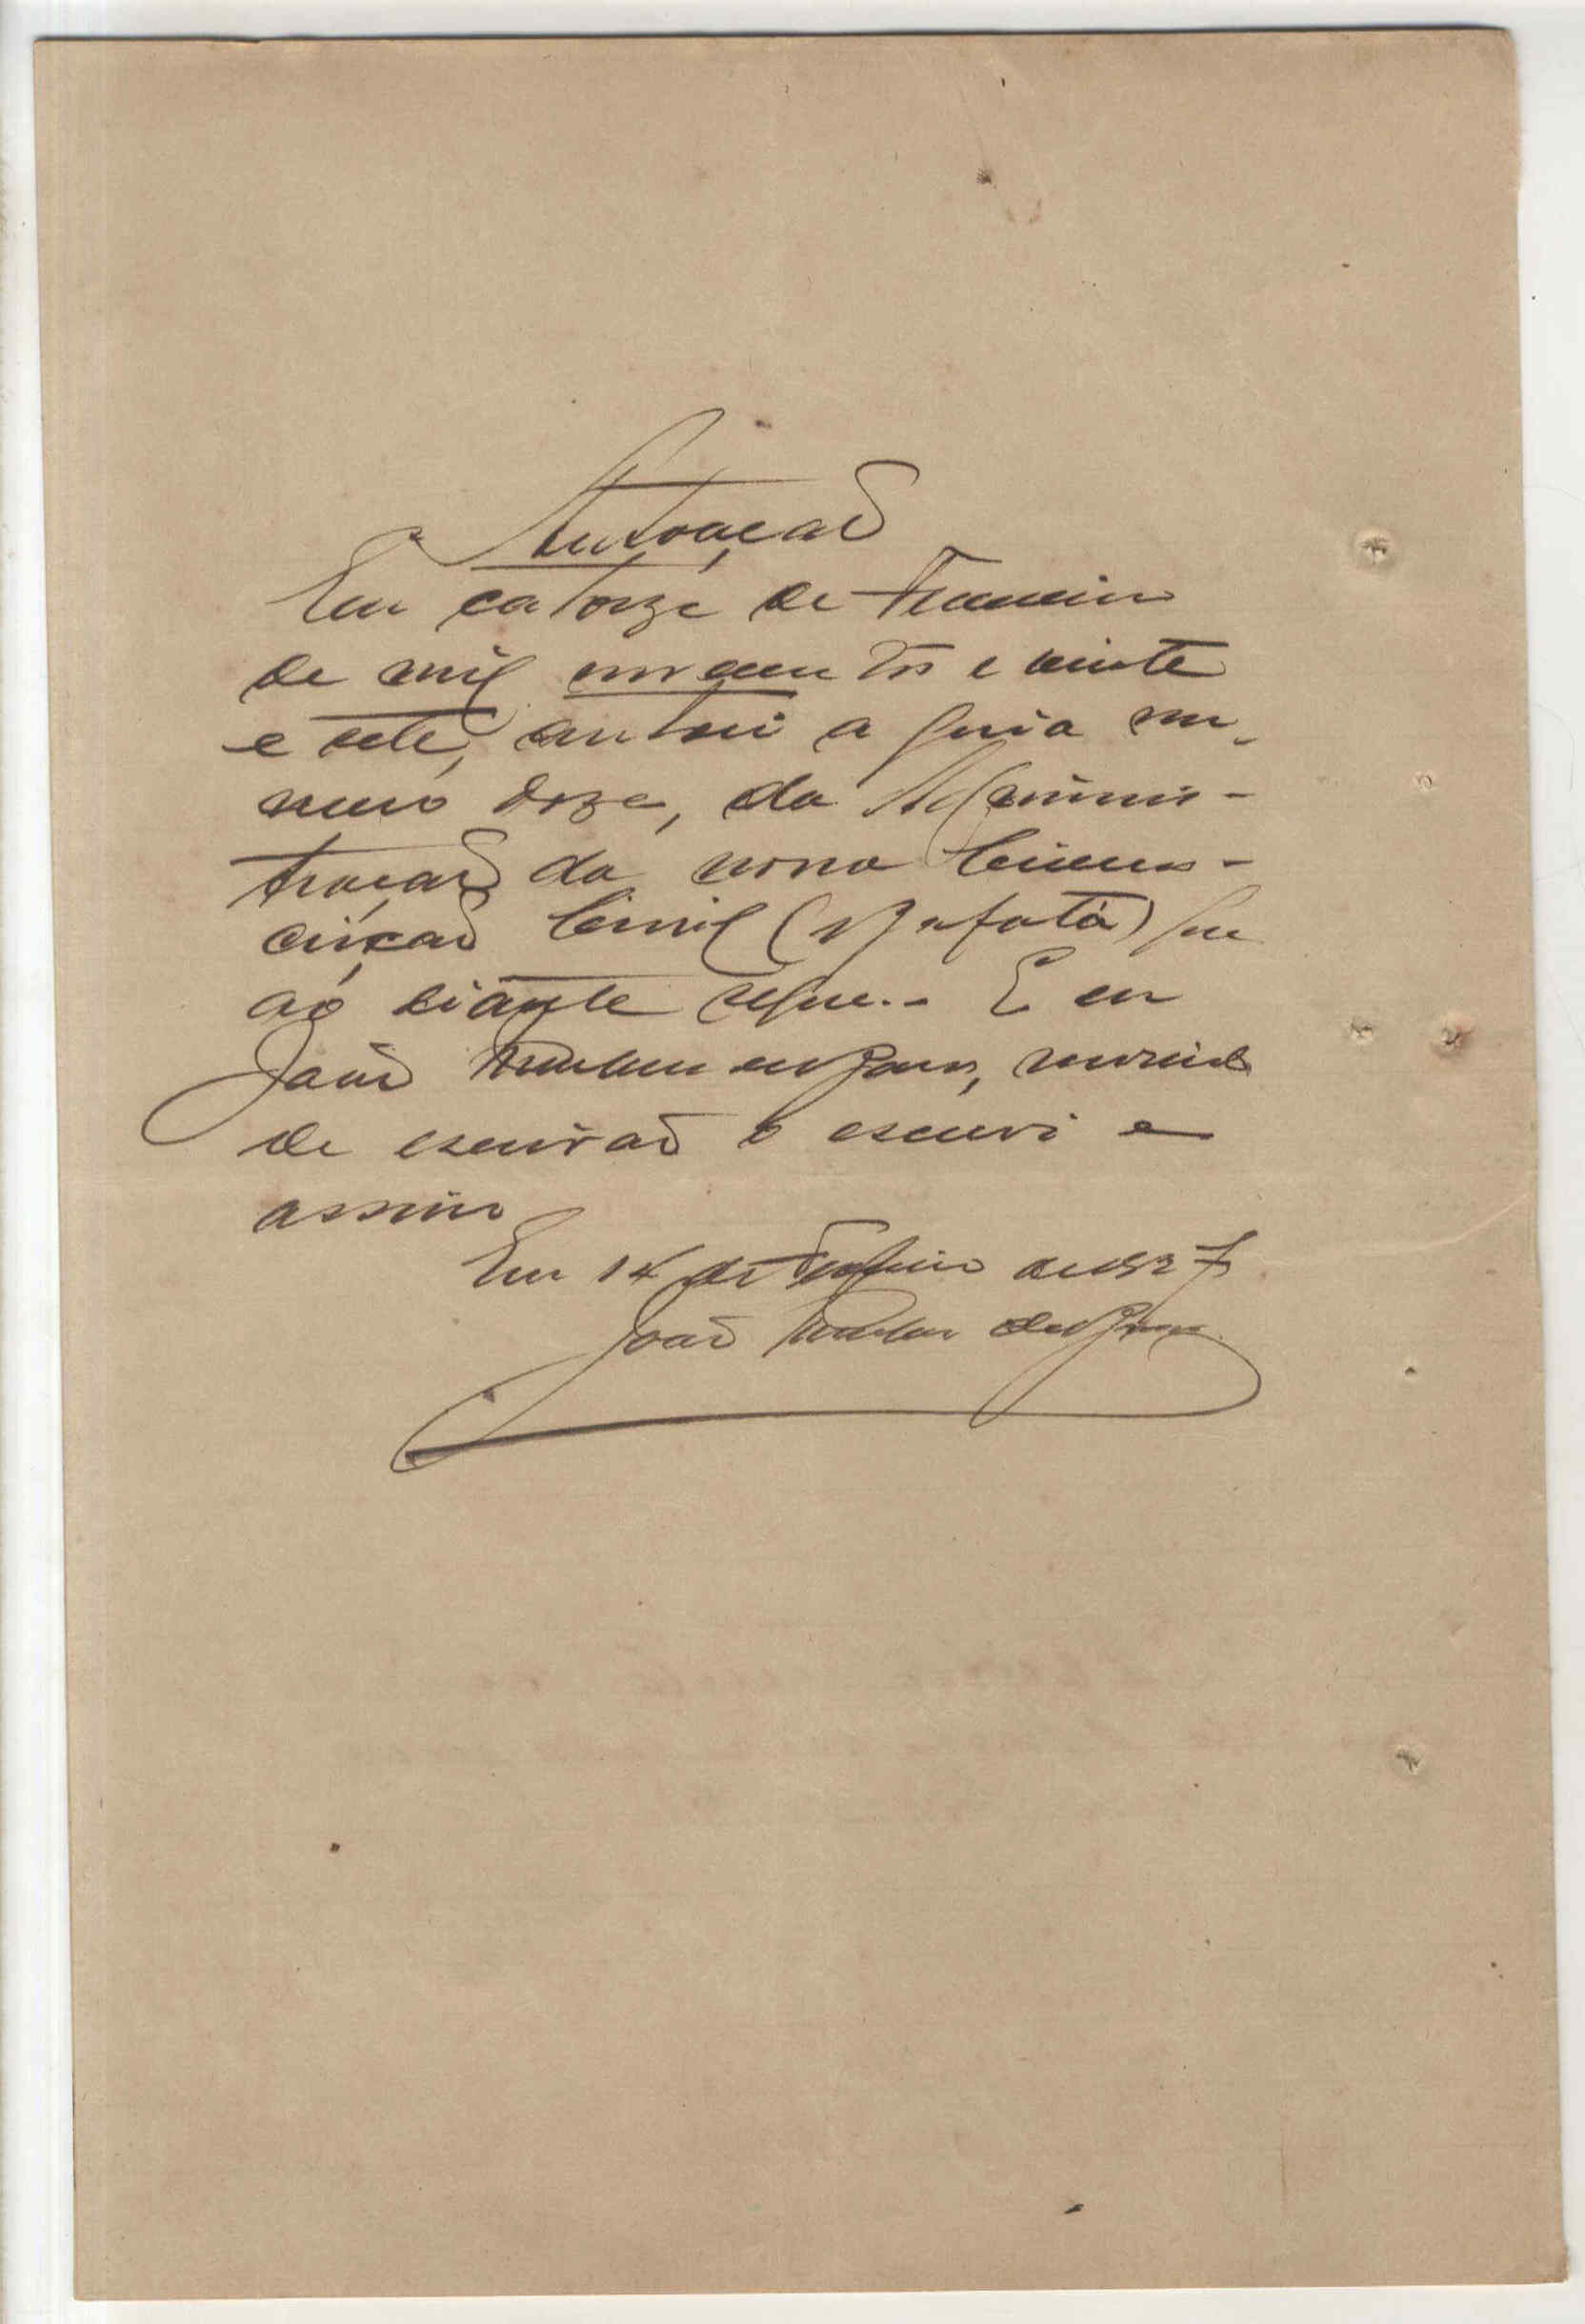 Autoação
Em catorze de Fevereiro
de mil novecentos e vinte
e sete, autoei a guia nu-
mero doze, da Adminis-
tração da nona Circuns-
crição Civil (Bafatá) que
ao diante segue.- E eu
João servindo
de escrivão o escrevi e
assino
Em 14 de Fevereiro de 1927
João